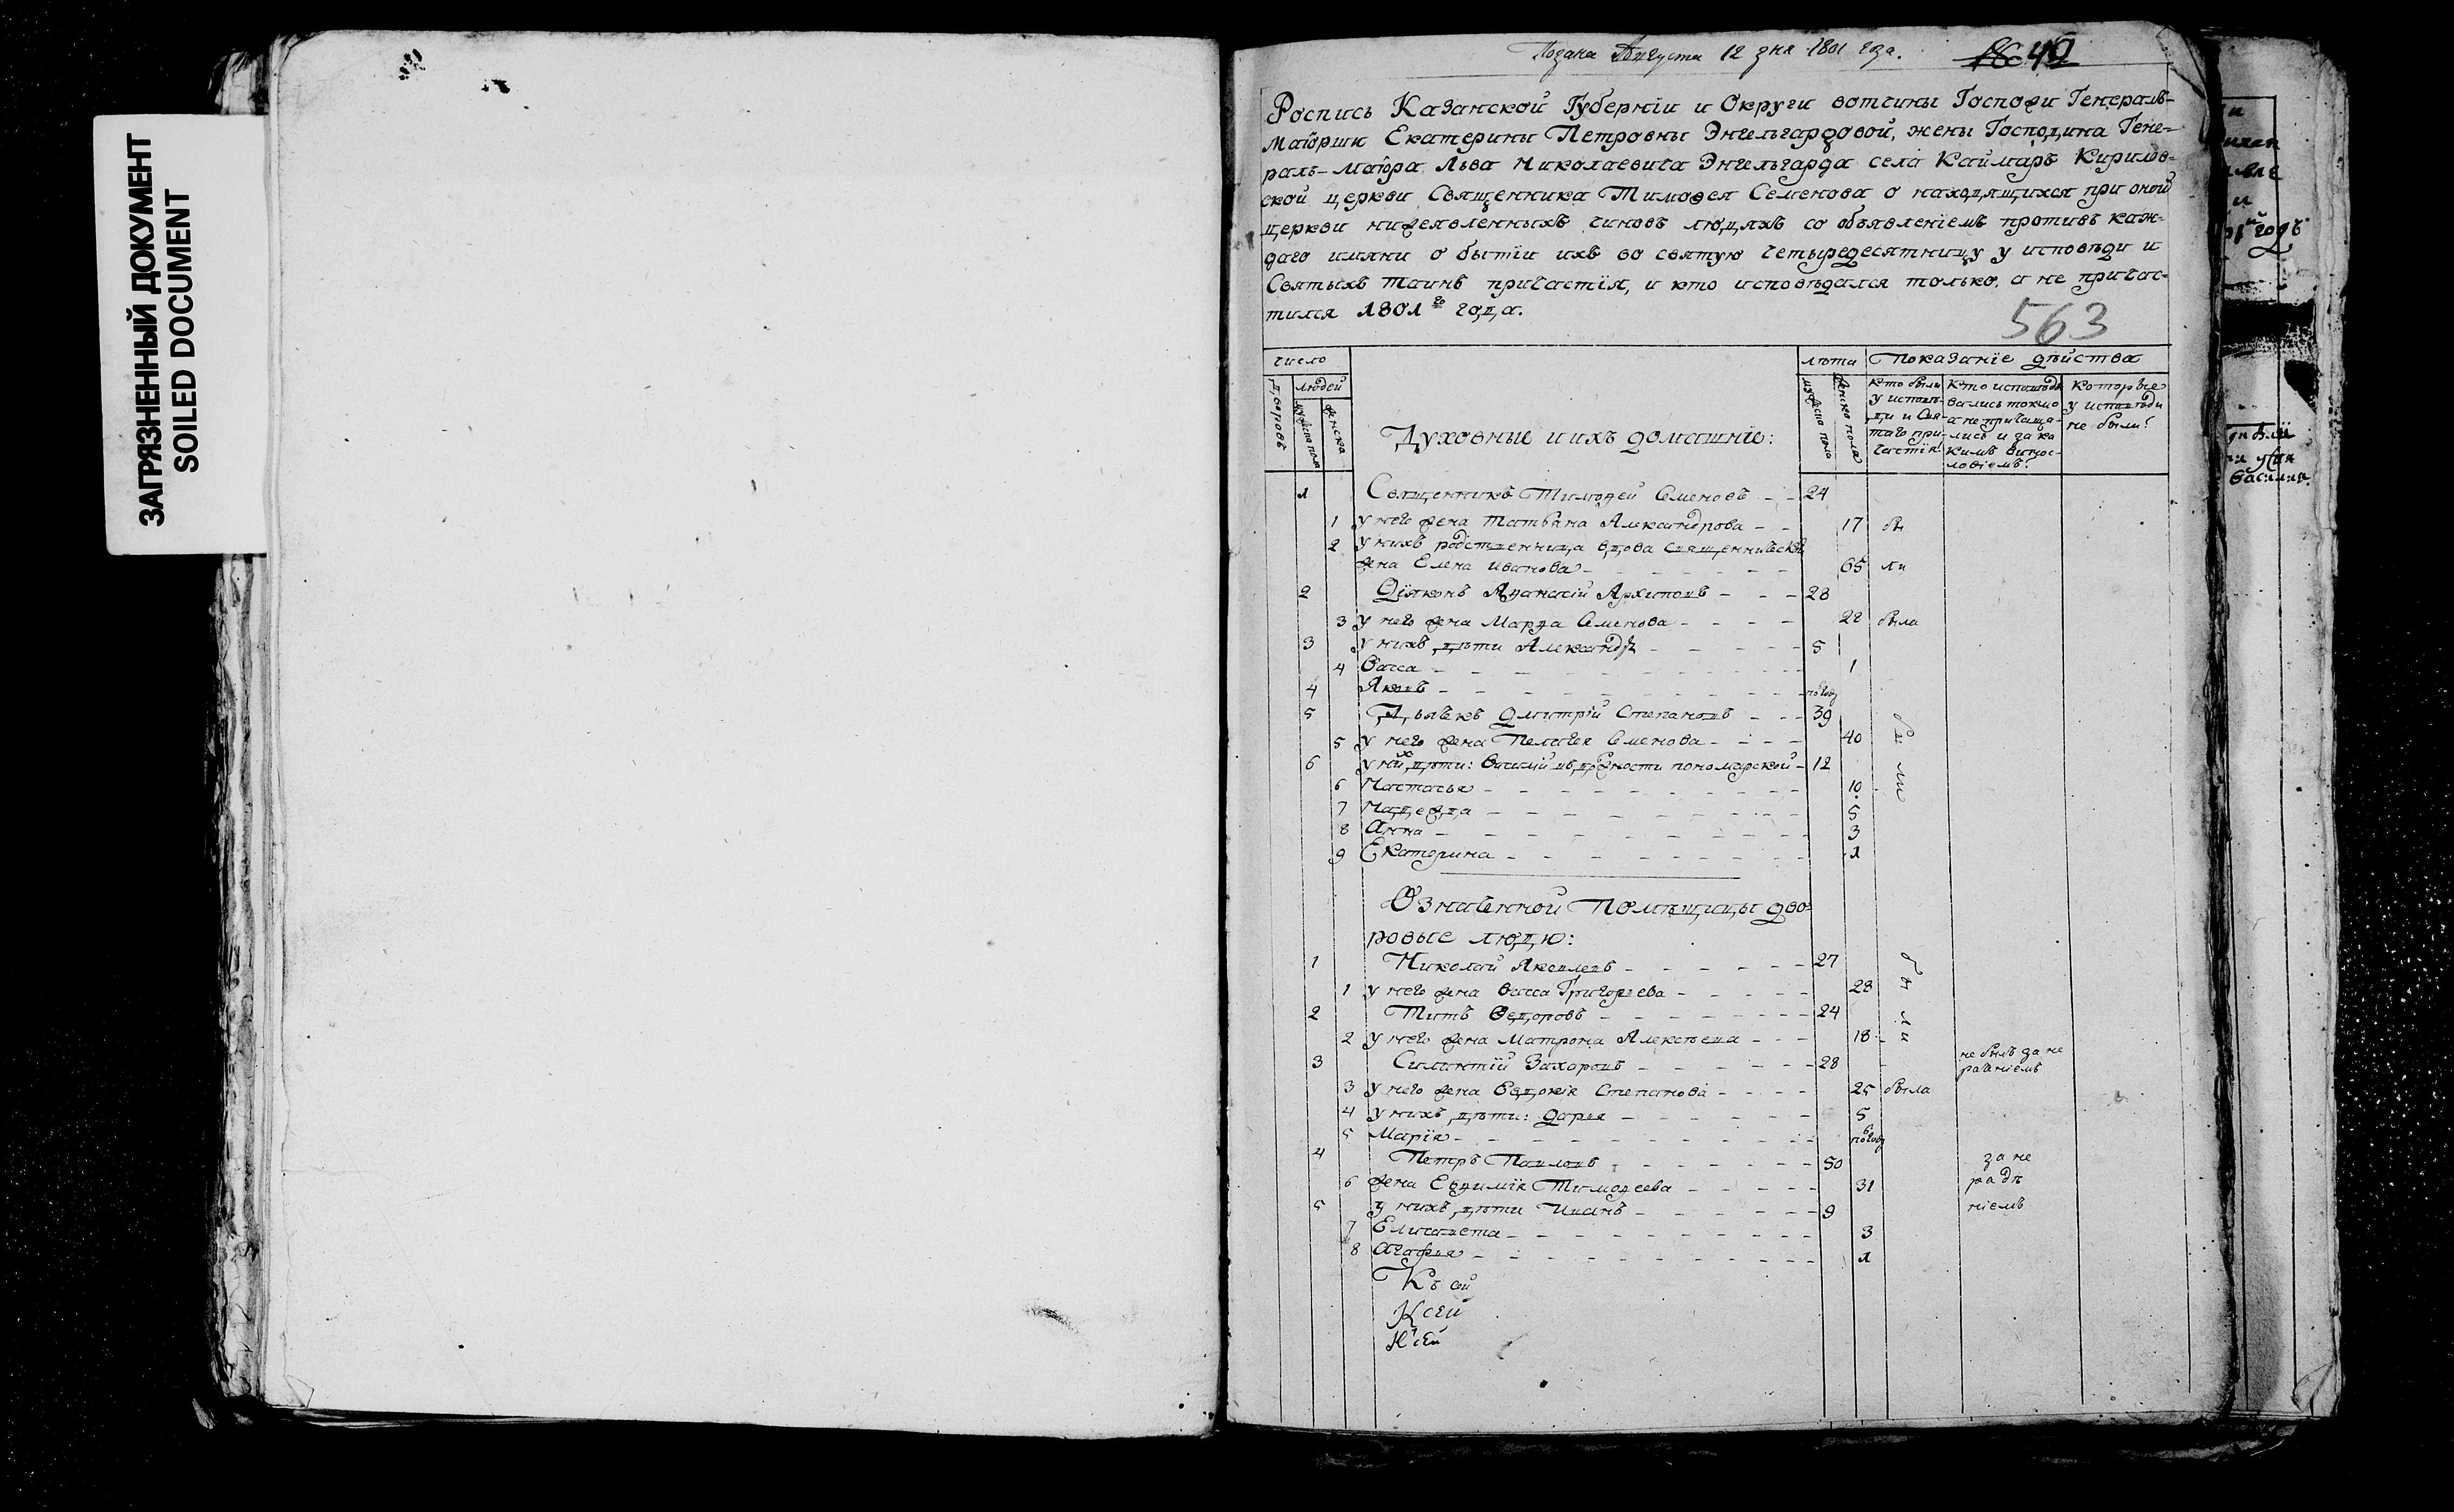 ЗАГРЯЗНЕННЫЙ ДОКУМЕНТ
SOILED DOCUMENT
Подана Августа 12 дня 1801 года.
Роспись Казанской Губернiи и Округи вотчины Госпожи Генералъ-
Маiорши Екатерины Петровны Энгильгардовой, жены Господина Гене-
ралъ-Маiора Льва Николаевича Энгильгарда села Каймаръ Кирилов-
ской церкви Священника Тимофея Семенова о находящихся при оной
церкви нижеявленныхъ чиновъ людяхъ со объявленiемъ противъ каж-
даго имяни о бытiи ихъ во святую четыредесятницу у исповѣди и
Святыхъ Таинъ причастiя, и кто исповѣдался только, а не причас-
тился 1801го года.
563
число
людей
дворовъ
мужеска пола
женска
Духовные и ихъ домашнiе:
лѣта
мужеска пола
женска пола
Показанiе дѣйства
кто были у исповѣди и Святаго причастiя?
кто исповѣдывались токмо а не причащались и за какимъ винословiемъ?
которые у исповѣди не были?
1 Священникъ Тимофей Семеновъ 24
1 у него жена Татьяна Александрова 17 бы
2 у нихъ родственница вдова священническая
жена Елена Иванова 65 ли
2 Дiяконъ Афанасiй Архиповъ 28
3 у него жена Марфа Семенова 28 была
3 у нихъ дѣти Александръ 5
4 Васса 1
4 Яковъ полгод
5 Дьячекъ Дмитрiй Степановъ 39
5 у него жена Пелагея Семенова 40
6 у них дѣти: Василiй въ должности пономарской 12
6 Настасья 10
7 Надежда 5
8 Анна 3
9 Екатерина 1
были
Означенной Помѣщицы дво-
ровые люди:
1 Николай Яковлевъ 27
1 у него жена Васса Григорьева 28
2 Титъ Федоровъ 24
2 у него жена Матрона Алексѣева 18
были
3 Силантiй Захаровъ 28 не былъ за не
раденiемъ
3 у него жена Евдокiя Степанова 25 была
4 у нихъ дѣти: Дарья 5
5 Марiя полгод
4 Петръ Павловъ 50 за не
6 жена Евфимiя Тимофеева 31 радѣ
5 у нихъ дѣти Иванъ 9 нiемъ
7 Елисавета 3
8 Агафья 1
Къ сей
К сей
К сей